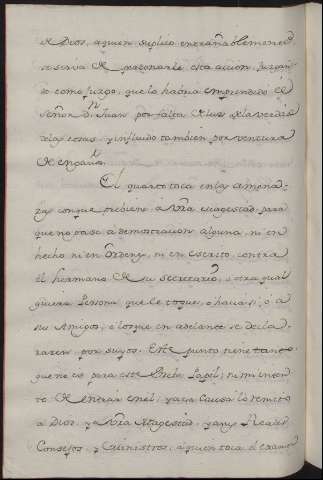 de Dios, a quien suplico entrañablemente
se sirva de perdonarle esta accion, juzgan-
do como juzgo, que la habrá emprendido el
Señor Dn. Juan por falta de luz de la verdad
de las cosas, y influido tambien por ventura
de engaño.
El quarto toca en las amena-
zas con que previene a Vra Magestad, para
que no pase a demostracion alguna, ni en
hecho, ni en ordenes, ni en escrito, contra
el hermano de su secretario, u otra qual
quiera Persona que le toque, o haua, o a
sus Amigos, o los que en adelante se decla-
raren por suyos. Este punto tiene tanto
que no es para este Papel; ni mi intento
de entrar en el; y assi la causa lo remito
a Dios, y a Vra Magestad, y a sus Reales
Consejos, y Ministros, a quien toca el exame